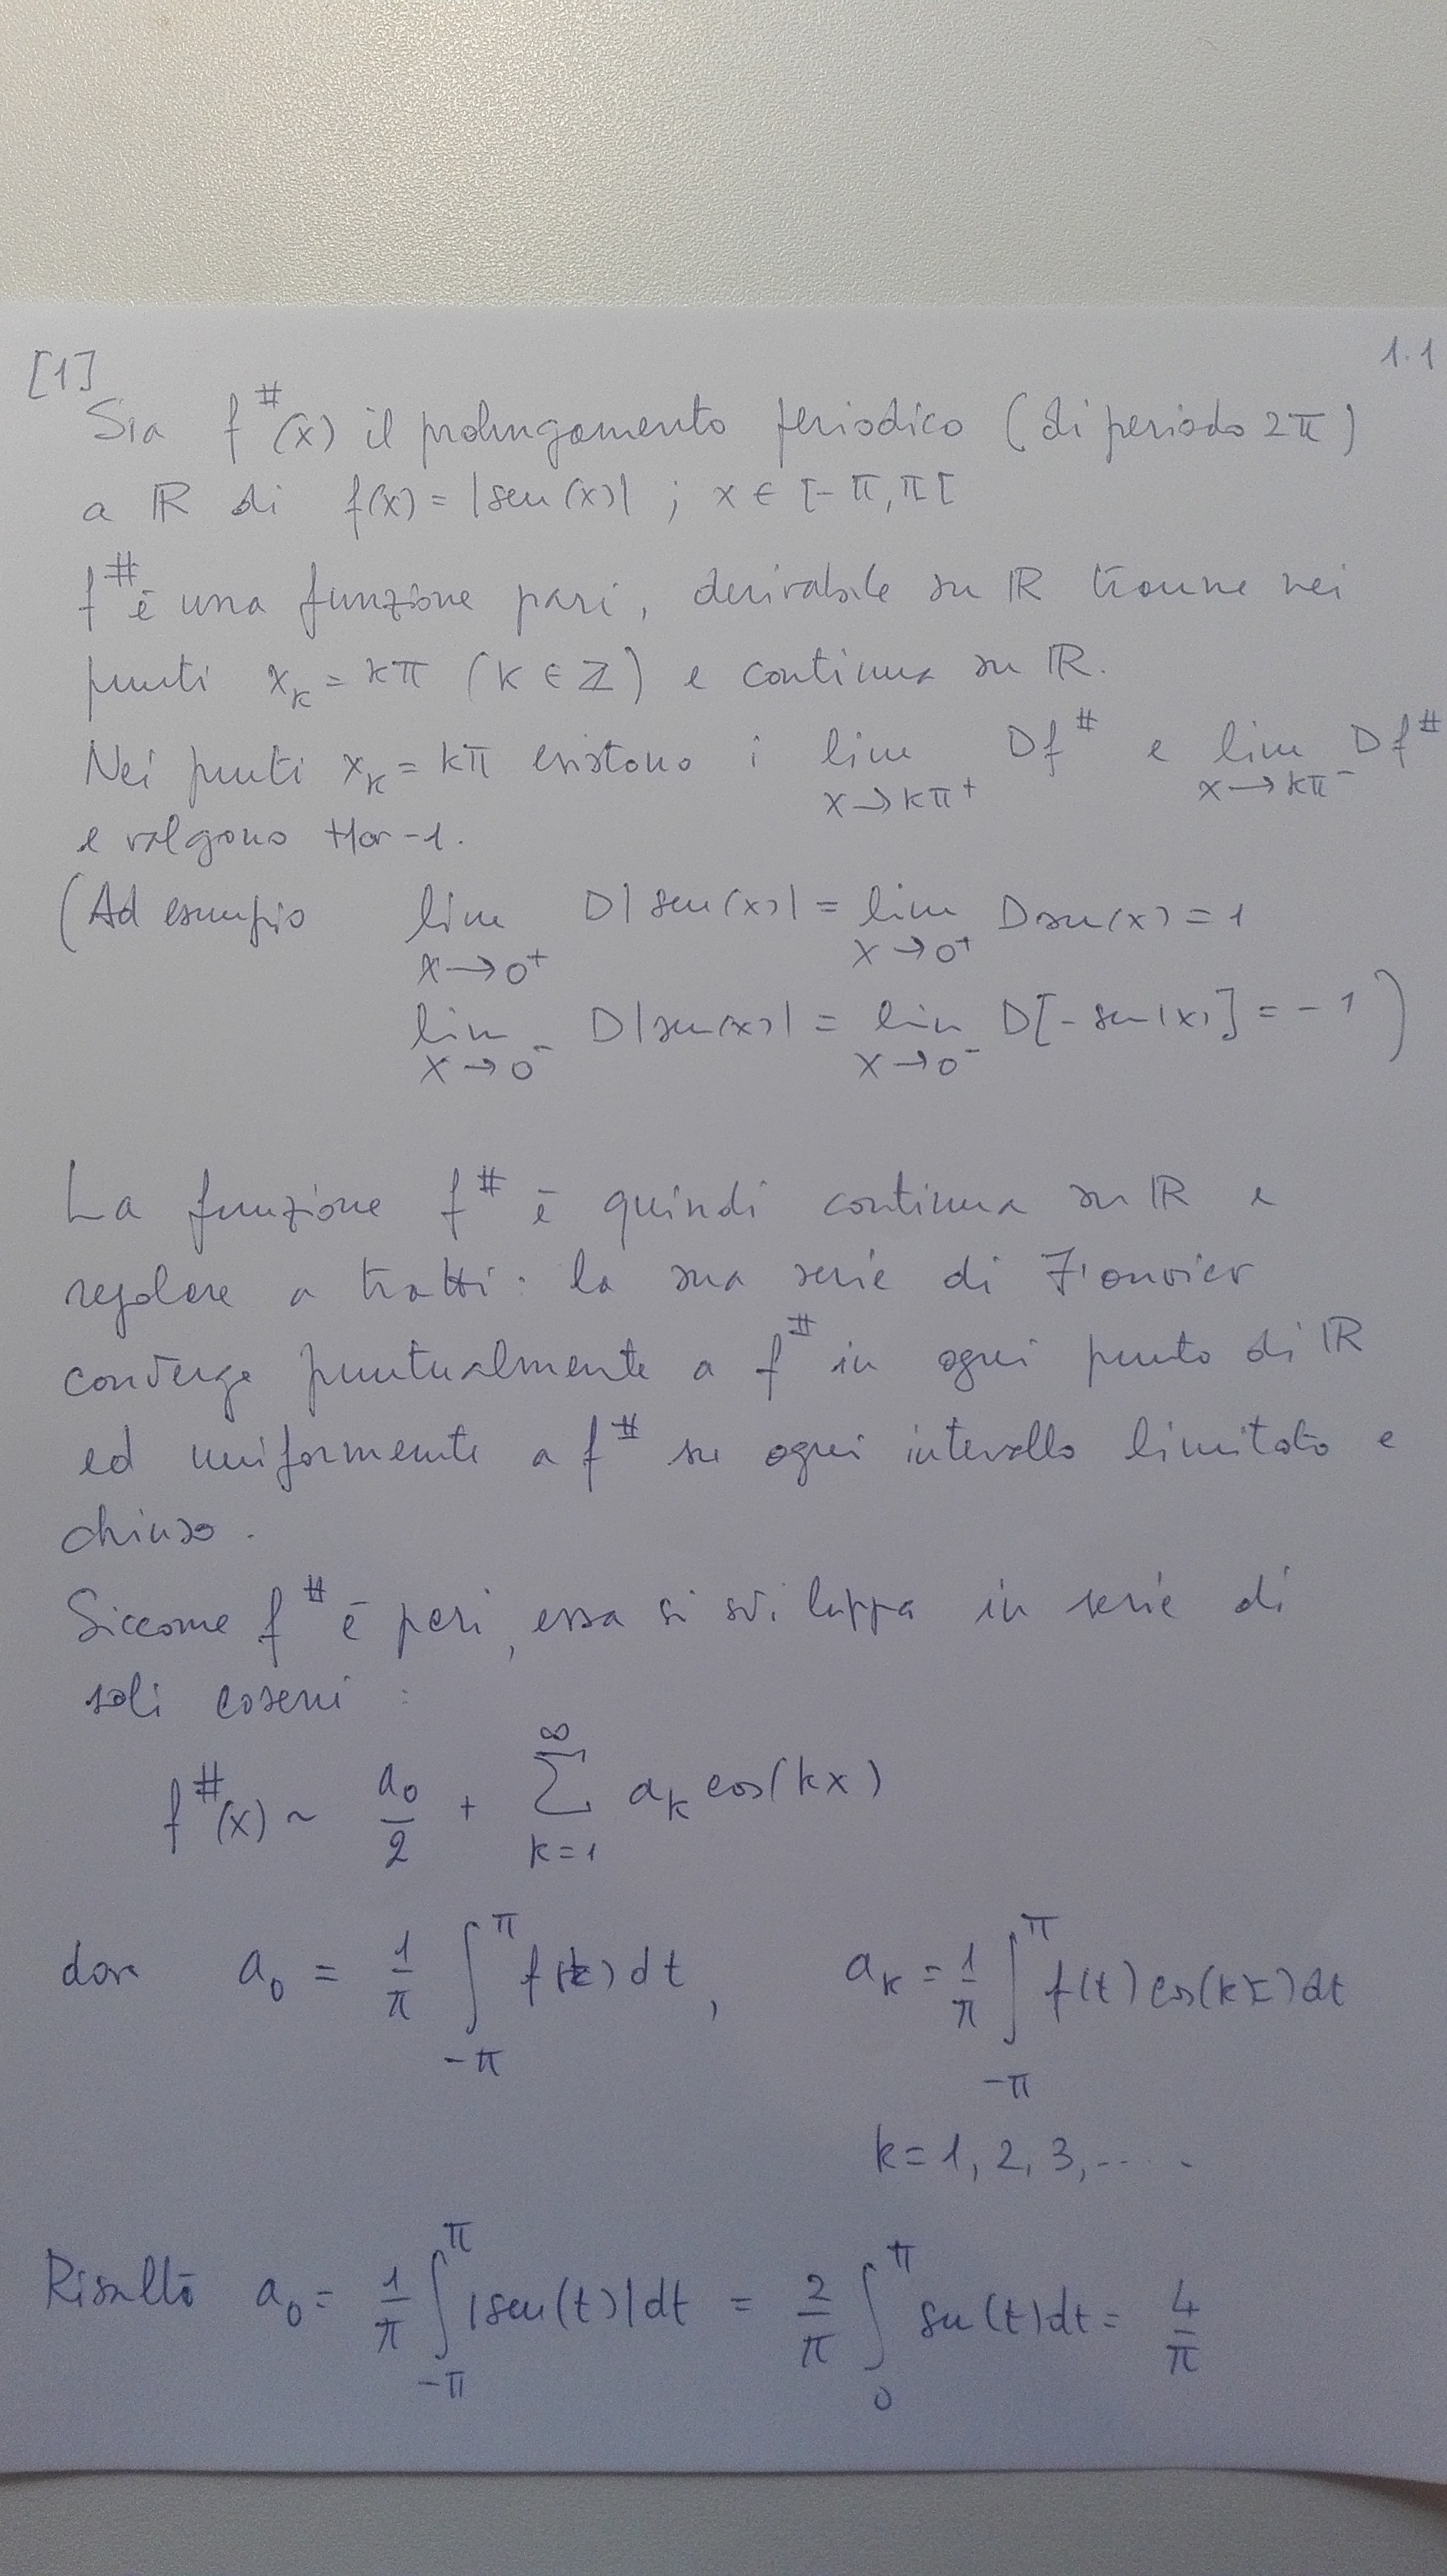 [1] 1.1
Sia f^#(x) il prolungamento periodico (di periodo 2π)
a ℝ di f(x) = |sen(x)| ; x ∈ [-π, π[
f^# è una funzione pari, derivabile su ℝ tranne nei
punti x_k = kπ (k ∈ ℤ) e continua su ℝ.
Nei punti x_k = kπ esistono i lim_{x→kπ⁺} Df^# e lim_{x→kπ⁻} Df^#
e valgono +1 or -1.
(Ad esempio lim_{x→0⁺} D|sen(x)| = lim_{x→0⁺} D sen(x) = 1
lim_{x→0⁻} D|sen(x)| = lim_{x→0⁻} D[-sen(x)] = -1)
La funzione f^# è quindi continua su ℝ e
regolare a tratti: la sua serie di Fourier
converge puntualmente a f^# in ogni punto di ℝ
ed uniformemente a f^# su ogni intervallo limitato e
chiuso.
Siccome f^# è pari, essa si sviluppa in serie di
soli coseni:
f^#(x) ~ a_0/2 + ∑_{k=1}^{∞} a_k cos(kx)
dove a_0 = 1/π ∫_{-π}^{π} f(t)dt, a_k = 1/π ∫_{-π}^{π} f(t) cos(kt)dt
k = 1, 2, 3, .....
Risulta a_0 = 1/π ∫_{-π}^{π} |sen(t)|dt = 2/π ∫_0^{π} sen(t)dt = 4/π